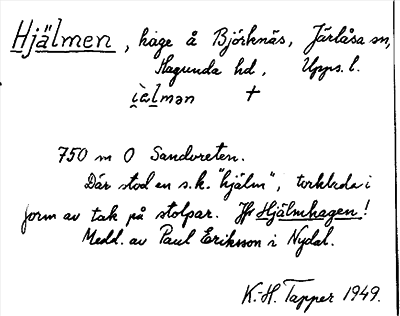 Hjälmen, hage å Björknäs, Järlåsa sn,
Hagunda hd, Upps. l.
i̯èlmən †
750 m O Sandvreten.
Där stod en s.k. "hjälm", torklada i
form av tak på stolpar. Jfr Hjälmhagen!
Medd. av Paul Eriksson i Nydal.
K.-H. Tapper 1949.